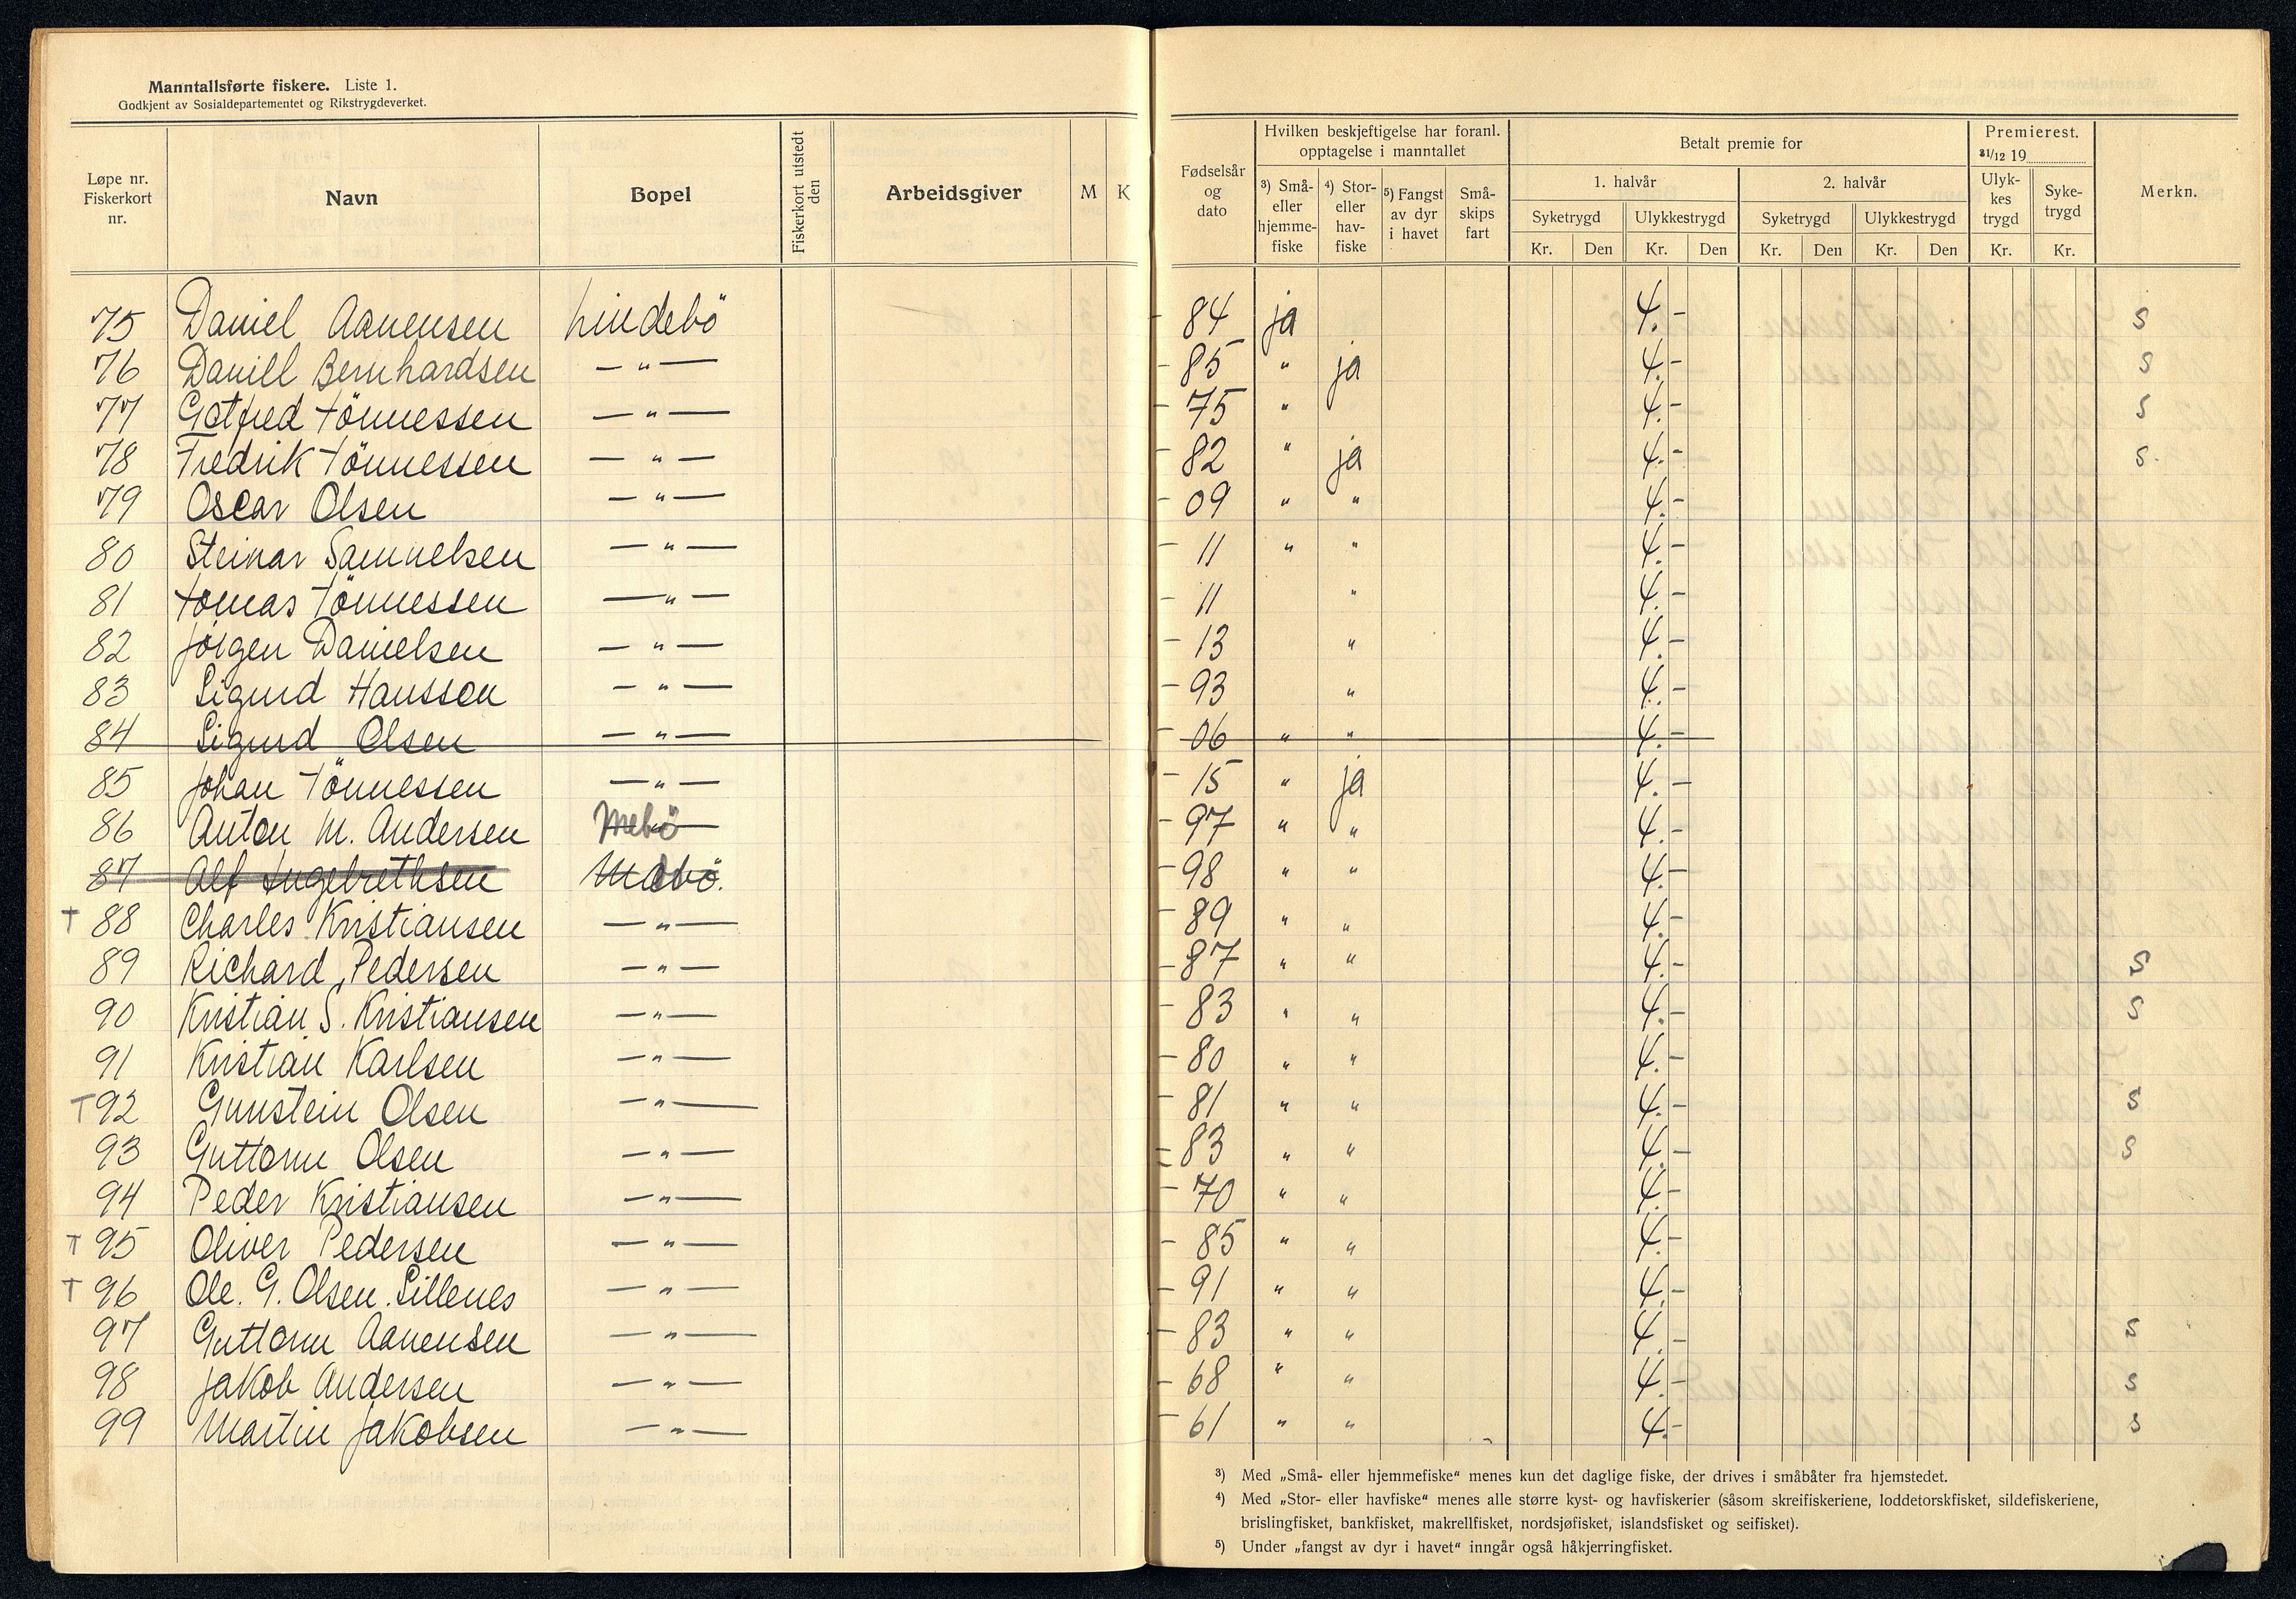 Manntallsførte fiskere. Liste 1.
Godkjent av Sosialdepartementet og Rikstrygdeverket.
Løpe nr. Fiskerkort nr. Navn Bopel Fiskerkort utstedt den Arbeidsgiver M K Fødselsår og dato
Hvilken beskjeftigelse har foranl. opptagelse i manntallet
³) Små- eller hjemme-fiske ⁴) Stor- eller hav-fiske ⁵) Fangst av dyr i havet Små-skips fart
Betalt premie for
1. halvår 2. halvår
Syketrygd Ulykkestrygd Syketrygd Ulykkestrygd
Kr. Den Kr. Den Kr. Den Kr. Den
Premierest. 31/12 19
Ulyk-kes trygd Syke-trygd
Kr. Kr.
Merkn.
75 Daniel Aanensen Lindebö - 84 ja 4.- S
76 Daniell Bernhardsen —"— - 85 " ja 4.- S
77 Gotfred Tönnessen —"— - 75 " 4.- S
78 Fredrik Tönnessen —"— - 82 " ja 4.- S
79 Oscar Olsen —"— - 09 " " 4.-
80 Steinar Samuelsen —"— - 11 " " 4.-
81 Tomas Tönnessen —"— - 11 " 4.-
82 Jörgen Danielsen —"— - 13 " 4.-
83 Sigurd Hansson —"— - 93 " 4.-
84 Sigurd Olsen —"— - 06 " " 4.-
85 Johan Tönnessen —"— - 15 " ja 4.-
86 Anton M. Andersen Mebö - 97 " " 4.-
87 Alf Ingebrethsen Mebö. - 98 " " 4.-
T 88 Charles Kristiansen —"— - 89 " " 4.-
89 Richard Pedersen —"— - 87 " " 4.- S
90 Kristian S. Kristiansen —"— - 83 " " 4.- S
91 Kristian Karlsen —"— - 80 " " 4.-
T 92 Gunstein Olsen —"— - 81 " " 4.- S
93 Guttorm Olsen —"— - 83 " " 4.- S
94 Peder Kristiansen —"— - 70 " " 4.-
T 95 Oliver Pedersen —"— - 85 " " 4.-
T 96 Ole. G. Olsen. Sillenes —"— - 91 " " 4.-
97 Guttorm Aanensen —"— - 83 " " 4.- S
98 Jakob Andersen —"— - 68 " " 4.- S
99 Martin Jakobsen —"— - 61 " " 4.- S
³) Med „Små- eller hjemmefiske" menes kun det daglige fiske, der drives i småbåter fra hjemstedet.
⁴) Med „Stor- eller havfiske" menes alle større kyst- og havfiskerier (såsom skreifiskeriene, loddetorskfisket, sildefiskeriene,
brislingfisket, bankfisket, makrellfisket, nordsjøfisket, islandsfisket og seifisket).
⁵) Under „fangst av dyr i havet" inngår også håkjerringfisket.